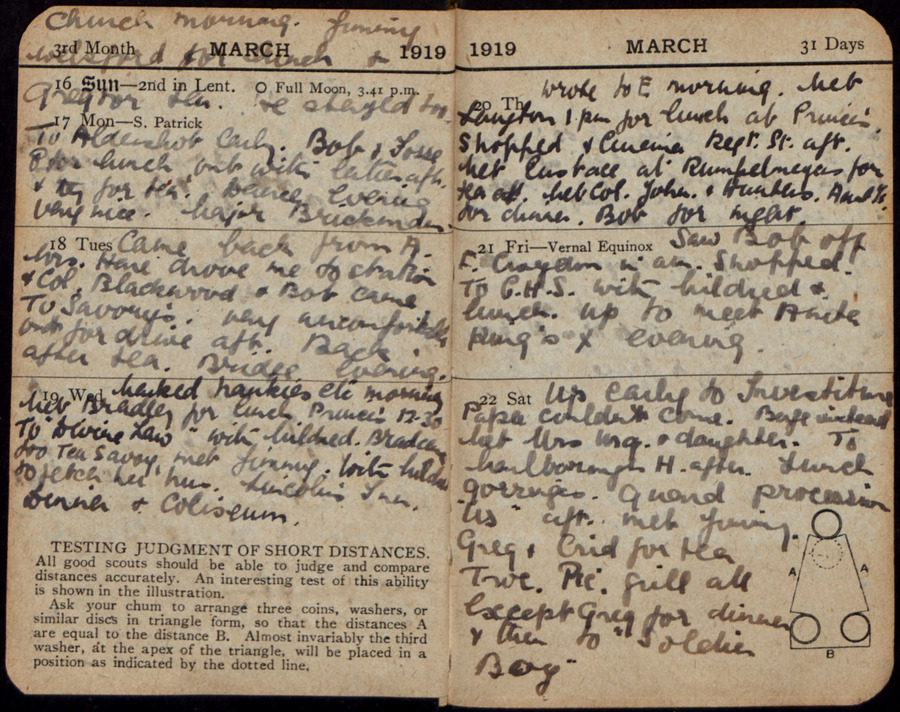 Church morning. Jimmy
3rd Month MARCH 1919
for lunch &
16 Sun—2nd in Lent. O Full Moon, 3.41 p.m.
Gregor tea. He stayed too.
17 Mon—S. Patrick
To Aldershot early. Bob &
for lunch out with latter aft.
& for tea. Dance evening
very nice. Major
18 Tues Came back from A.
Mrs. Hare drove me to station
& Col. Blackwood & Bob came
To Savoy's. very uncomfortable
out for drive aft. Back
after tea. Bridge evening.
19 Wed Marked hankies etc morning
Met Bradley for lunch Princes 12-30
To "Divine Law" with Mildred.
to Tea Savoy, met Jimmy. With
to fetch her hus. Lincoln's Inn.
Dinner & Coliseum.
TESTING JUDGMENT OF SHORT DISTANCES.
All good scouts should be able to judge and compare
distances accurately. An interesting test of this ability
is shown in the illustration.
Ask your chum to arrange three coins, washers, or
similar discs in triangle form, so that the distances A
are equal to the distance B. Almost invariably the third
washer, at the apex of the triangle, will be placed in a
position as indicated by the dotted line.
1919 MARCH 31 Days
20 Th wrote to E morning. Met
Langton 1 pm for lunch at Princes.
Shopped & Cinema Regt. St. aft.
Met Eustace at Rumpelmeyers for
tea aft. Met Col. John. &
for dinner. Bob for night.
21 Fri—Vernal Equinox Saw Bob off
f. Croydon in am. Shopped.
To C.H.S. with Mildred &
lunch. up to meet Anita
King's X evening.
22 Sat Up early to Investiture
Papa couldn't come. instead
met Mrs & daughter. To
Marlborough H. after. Lunch
Gorringes. Guard procession
"Us" aft. met Jimmy.
Greg & Enid for tea
Troc. Pic. grill all
except Greg for dinner
& then to "Soldier
Boy"
A A
B